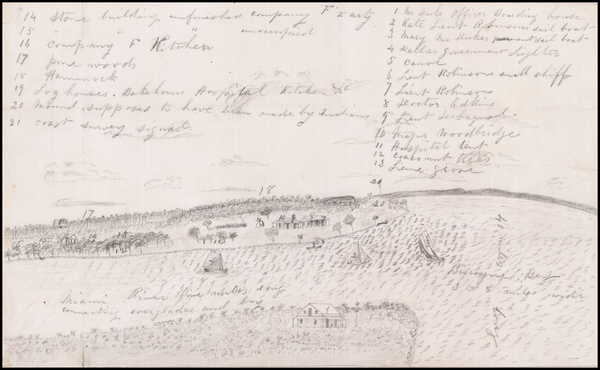 14 Stone building unfinished company F Party
15 " " " unoccupied
16 company "F Kitchen
17 pine woods
18 Hammock
19 Log houses. Bakehouse Hospital Kitchen &c
20 Mound supposed to have been made by Indians
21 coast survey signal
1 Mr Duke Officer Boarding house
2 Kate Lieut Robinsons sail boat
3 Mary Mr Dukes sail boat
4 Dallas government Lighter
5 Canoe
6 Lieut Robinsons small skiff
7 Lieut Robinsons
8 Doctor Adkins
9 Lieut
10 Major Woodbridge
11 Hospital tent
12 Cocoanut trees
13 Lime grove
21
20
18
17
Miami River five miles long
connecting everglades and bay
Biscayne Bay
3 miles wide
40 miles long